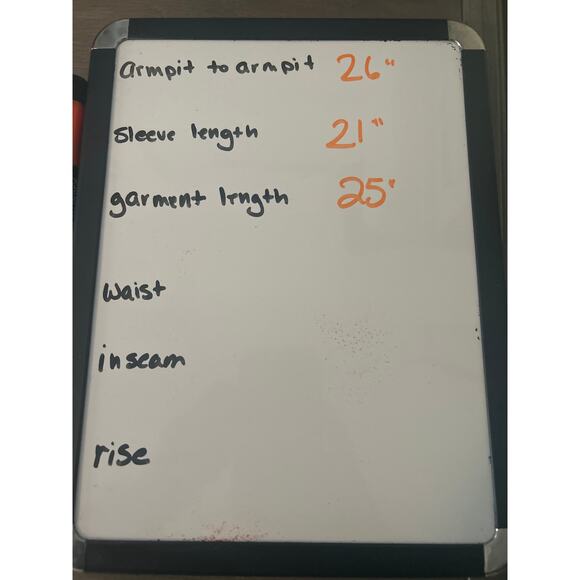 armpit to armpit 26"
Sleeve length 21"
garment length 25'
waist
inseam
rise